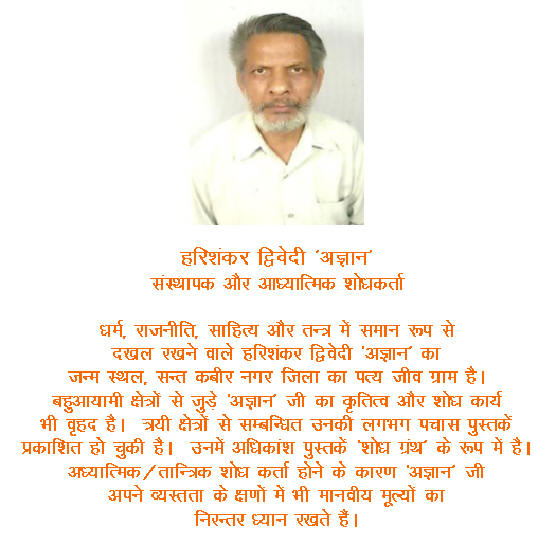 हरिशंकर द्विवेदी 'अज्ञान'
संस्थापक और आध्यात्मिक शोधकर्ता
धर्म, राजनीति, साहित्य और तन्त्र में समान रूप से
दखल रखने वाले हरिशंकर द्विवेदी 'अज्ञान' का
जन्म स्थल, सन्त कबीर नगर जिला का पत्य जीव ग्राम है।
बहुआयामी क्षेत्रों से जुड़े 'अज्ञान' जी का कृतित्व और शोध कार्य
भी वृहद है। त्रयी क्षेत्रों से सम्बन्धित उनकी लगभग पचास पुस्तकें
प्रकाशित हो चुकी है। उनमें अधिकांश पुस्तकें 'शोध ग्रंथ' के रूप में है।
अध्यात्मिक/तान्त्रिक शोध कर्ता होने के कारण 'अज्ञान' जी
अपने व्यस्तता के क्षणों में भी मानवीय मूल्यों का
निरन्तर ध्यान रखते हैं।